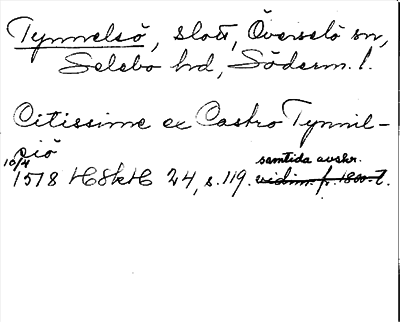 Tynnelsö, slott, Överselö sn,
Selebo hd, Söderm. l.
Citissime ex Castro Tynnil-
siö
10/4 samtida avskr.
1578 HSkH 24, s. 119. vidim. fr. 1800-t.